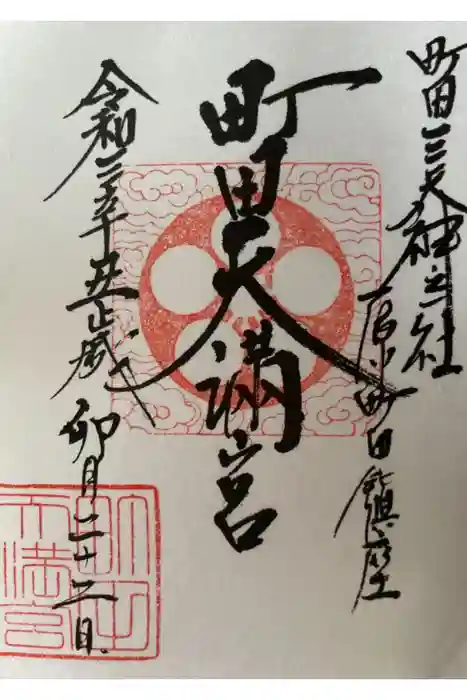 町田三天神之社
原町田鎮座
町田天満宮
令和三年辛丑歳
卯月二十二日
町田天満宮